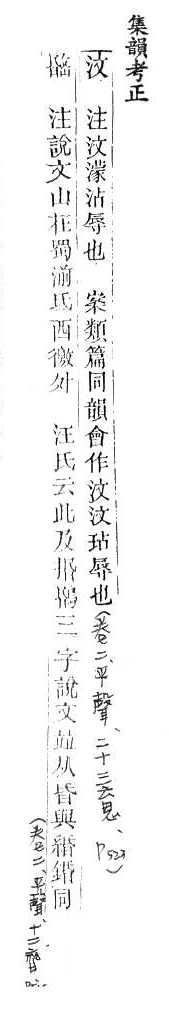 集韻考正
汶 注汶濛沾辱也 案類篇同韻會作汶汶玷辱也(卷二、平聲、二十三魂、P523)
注說文山在蜀湔氐西徼外 汪氏云此及 三字說文並从昏與緡錉同(卷二、平聲、十